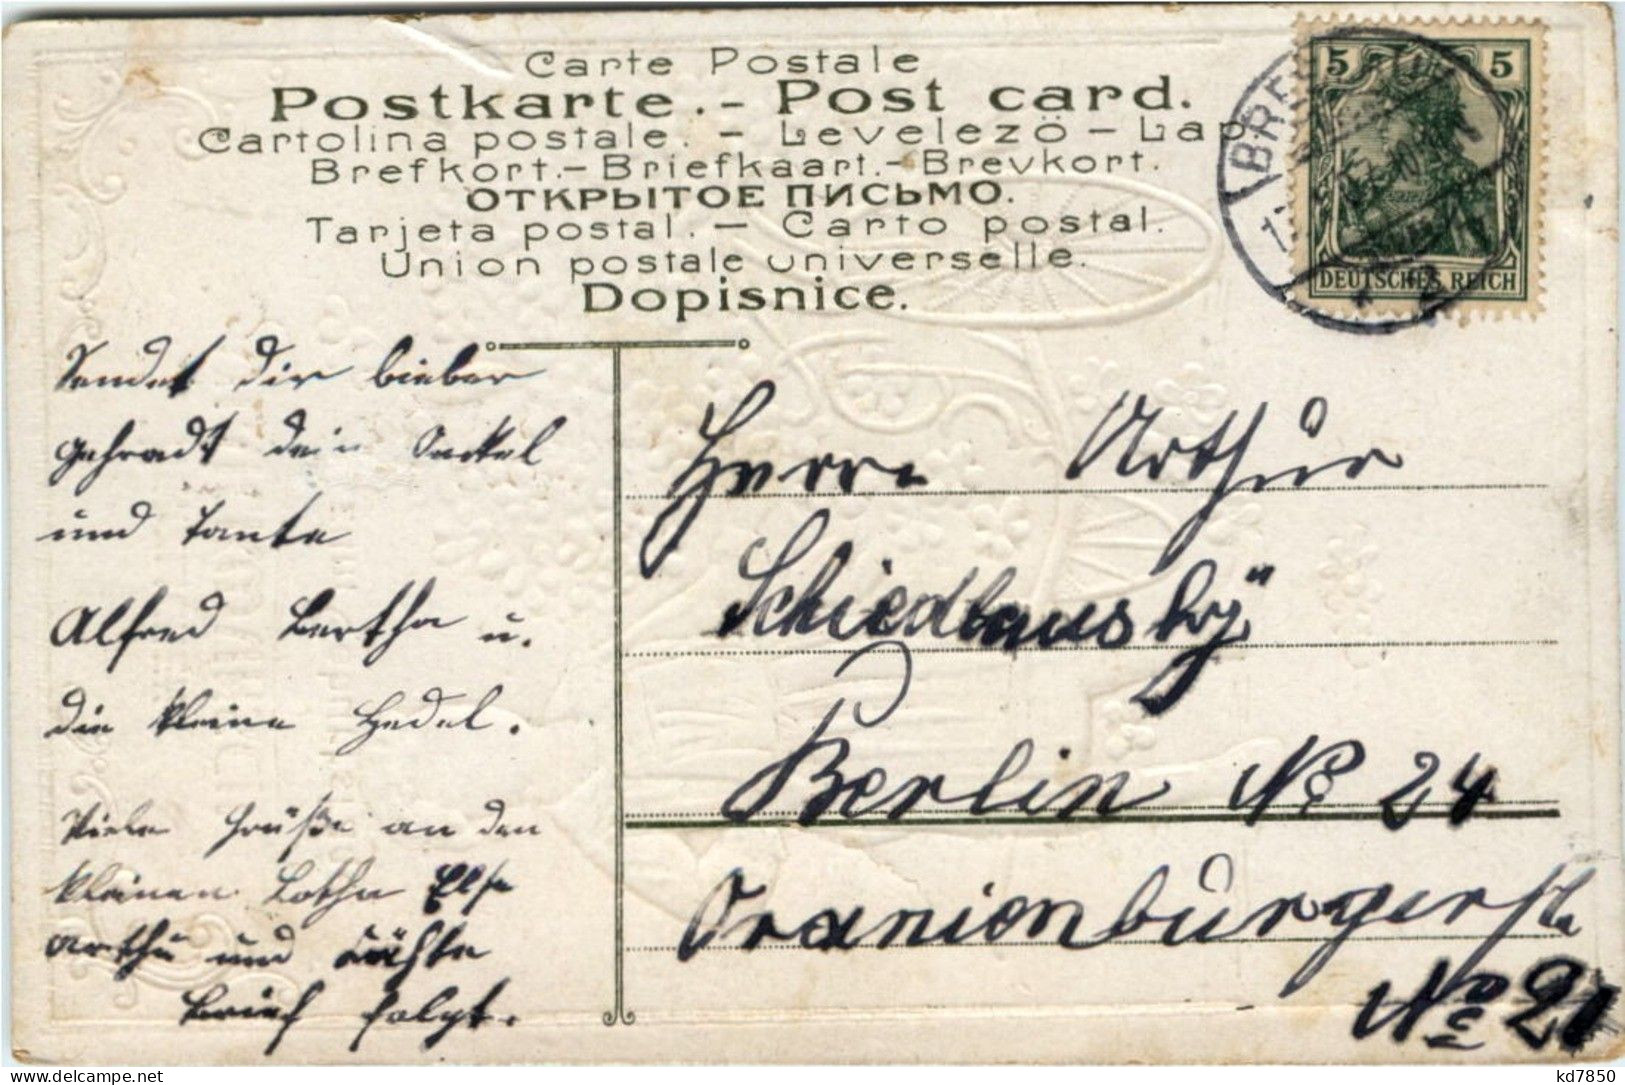 Carte Postale
Postkarte. - Post card.
Cartolina postale. - Levelezö - Lap
Brefkort. - Briefkaart. - Brevkort.
ОТКРЫТОЕ ПИСЬМО.
Tarjeta postal. - Carto postal.
Union postale universelle.
Dopisnice.
5 5
DEUTSCHES REICH
BRESLAU
Sendet dir lieber
dein Onkel
und Tante
Alfred Bertha u.
die kleine Hedel.
Viele Grüße an den
kleinen Lotha Else
arthu und
Brief folgt.
Herrn Arthur
Schiedlausky
Berlin No 24
Oranienburgerstr
No 21
kd7850